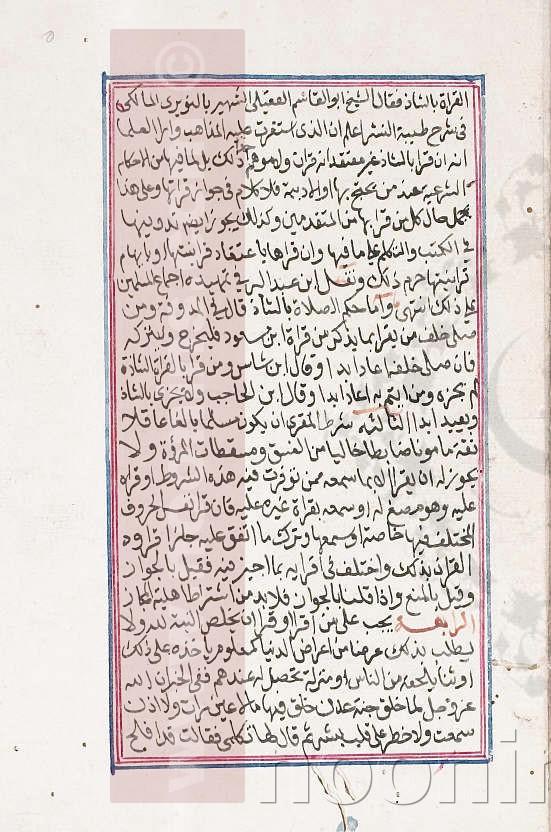 القراة بالشاذ فقال الشيخ ابو القاسم العقيلي الشهير بالنويري المالكي
في شرح طيبة النشر اعلم ان الذي استقرت عليه المذاهب واراء العلما
انه ان قرا بالشاذ غير معتقد انه قران ولا موهم ذلك بل لما فيها من الاحكام
الشرعية عند من يحتج بها او الادبية فلا كلام في جواز قراتها وعلى هذا
يحمل حال كل من قرا بها من المتقدمين وكذلك يجوز ايضا تدوينها
في الكتب والتكلم على ما فيها وان قرها باعتقاد قرانيتها او بايهام
قرانيتها حرم ذلك ونقل ابن عبد البر في تمهيده اجماع المسلمين
على ذلك انتهى واما حكم الصلاة بالشاذ قال في المدونة ومن
صلى خلف من يقرا بما يذكر من قراة ابن مسعود فليخرج وليتركه
فان صلى خلفه اعاد ابدا وقال ابن شاس ومن قرا بالقراة الشاذة
لم يجزه ومن ائتم به اعاد ابدا وقال ابن الحاجب ولا يجزى بالشاذ
ويعيد ابدا الثالثه شرط المقري ان يكون مسلما بالغا عاقلا
ثقة مامونا ضابطا خاليا من الفسق ومسقطات المرؤة ولا
يجوز له ان يقرا الا بما سمعه ممن توفرت فيه هذه الشروط او قراه
عليه وهو مصغ له او سمعه بقراة غيره عليه فان قرا نفس الحروف
المختلف فيها خاصة او سمعها وترك ما اتفق عليه جاز اقراوه
القران بذلك واختلف في اقرايه بما اجيز فيه فقيل بالجواز
وقيل بالمنع واذا قلنا بالجواز فلا بد من اشتراط اهلية المجاز
الرابعه يجب على من اقرا وقرا ان يخلص النية لله ولا
يطلب بذلك عرضا من اعراض الدنيا كمعلوم ياخذه على ذلك
او ثناء يلحقه من الناس او منزلة تحصل له عندهم ففي الخبر ان الله
عز وجل لما خلق جنة عدن خلق فيها ما لا عين رات ولا اذن
سمعت ولا خطر على قلب بشر ثم قال لها تكلمي فقالت قد افلح